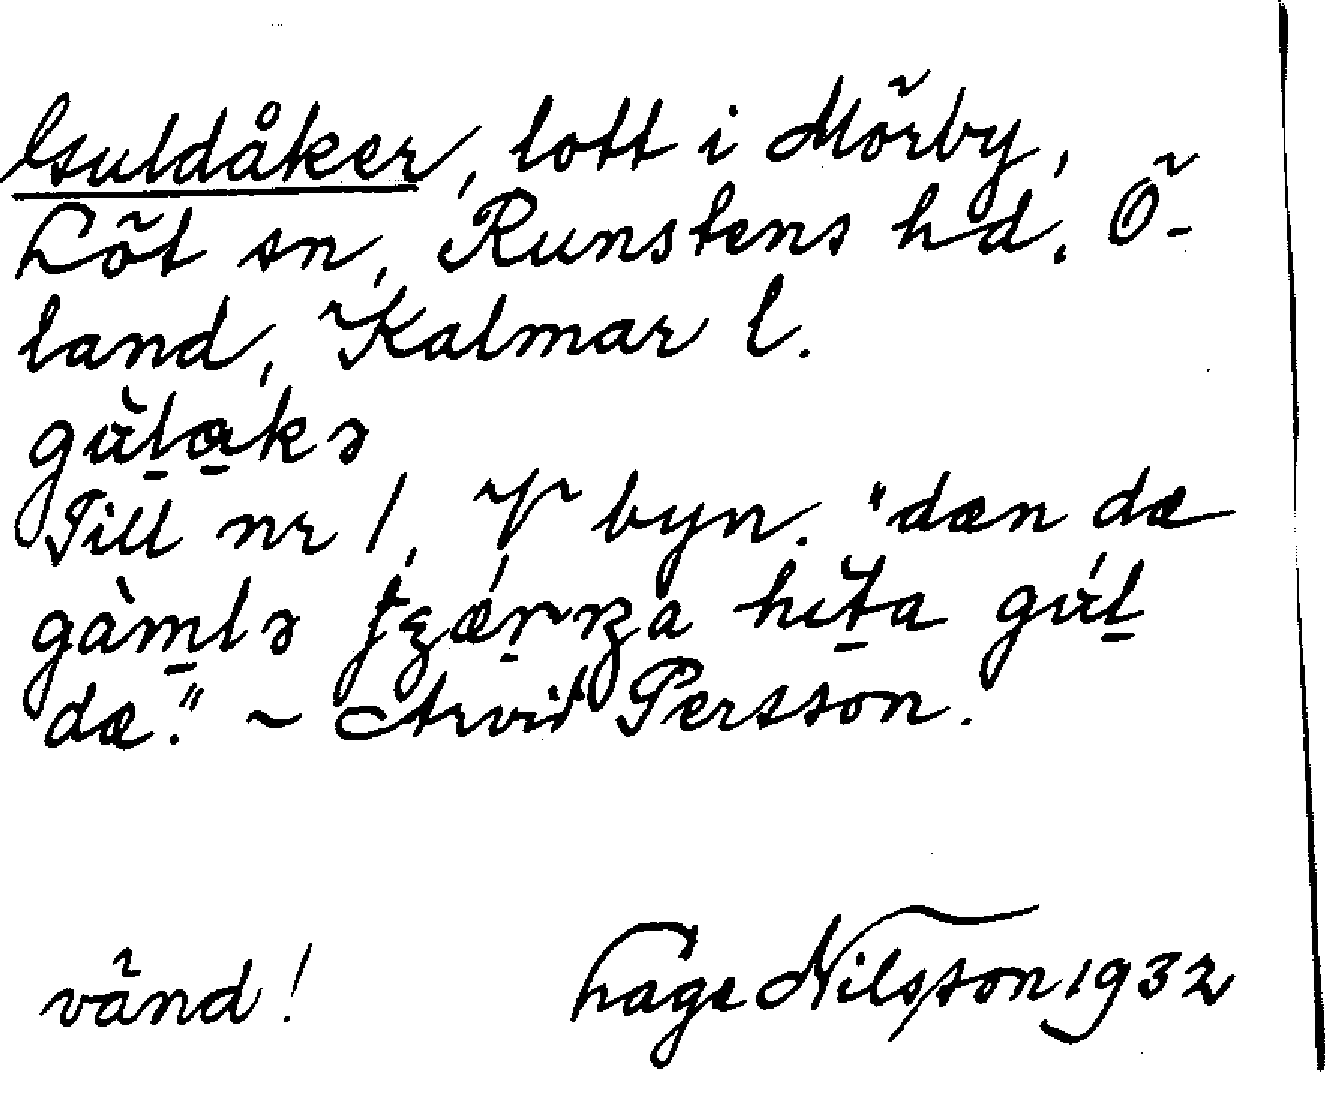 Guldåker, lott i Mörby,
Löt sn, Runstens hd. Ö-
land, Kalmar l.
gùl̲a̲kə
Till nr 1, V byn. "dæn dæ
gàm̲lə hit̲a gúl̲
dæ." ~ Arvid Persson.
vänd! Hage Nilsson 1932